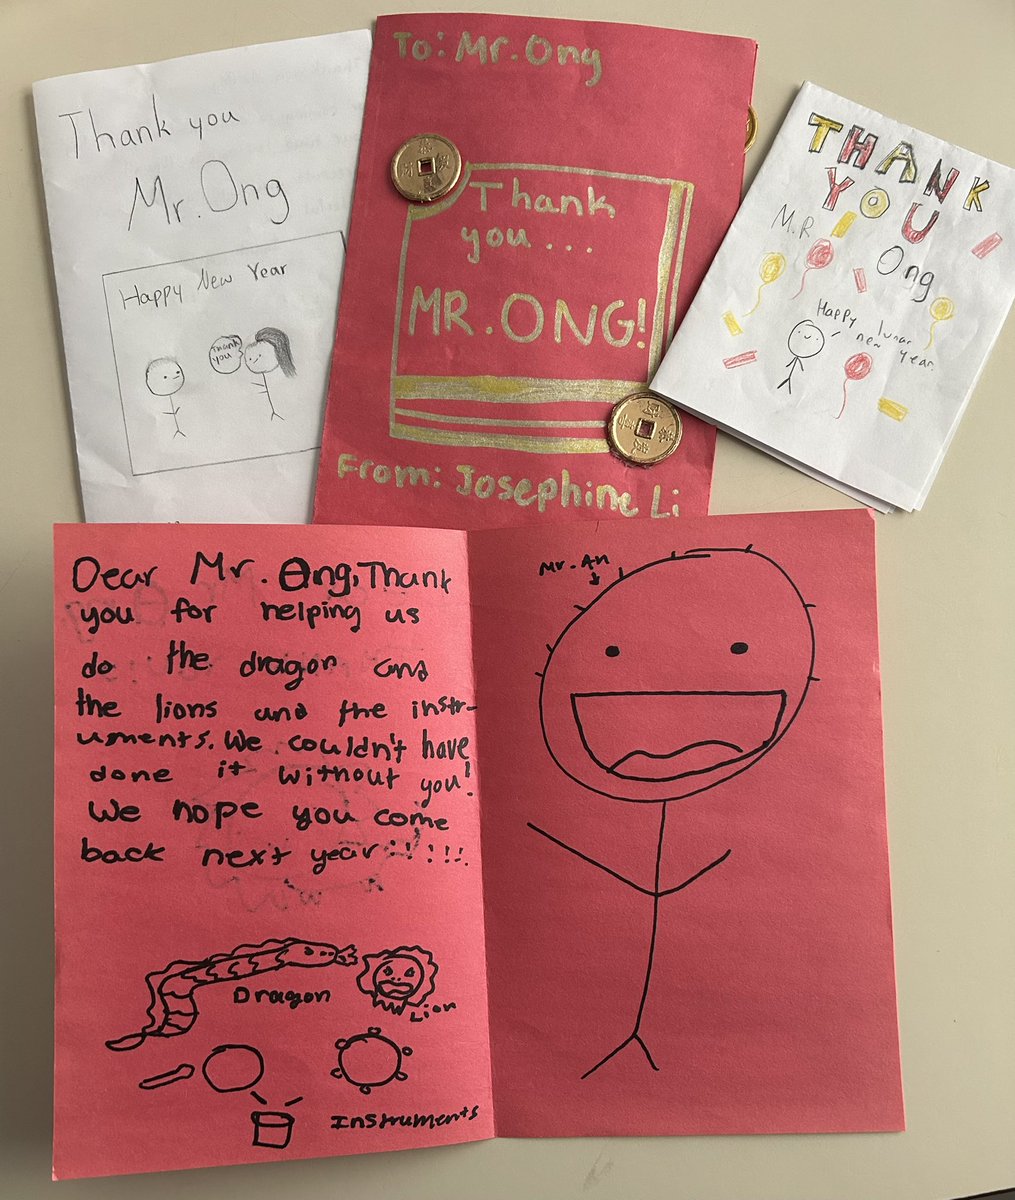 Thank you
Mr. Ong
Happy New Year
Thank
you
To: Mr. Ong
Thank
you...
MR. ONG!
From: Josephine Li
THANK
YOU
M.R
Ong
Happy lunar
new year.
Dear Mr. Ong, Thank
you for helping us
do the dragon and
the lions and the instr-
uments. We couldn't have
done it without you!
We hope you come
back next year!!!!!
Dragon
Lion
Instruments
Mr. An